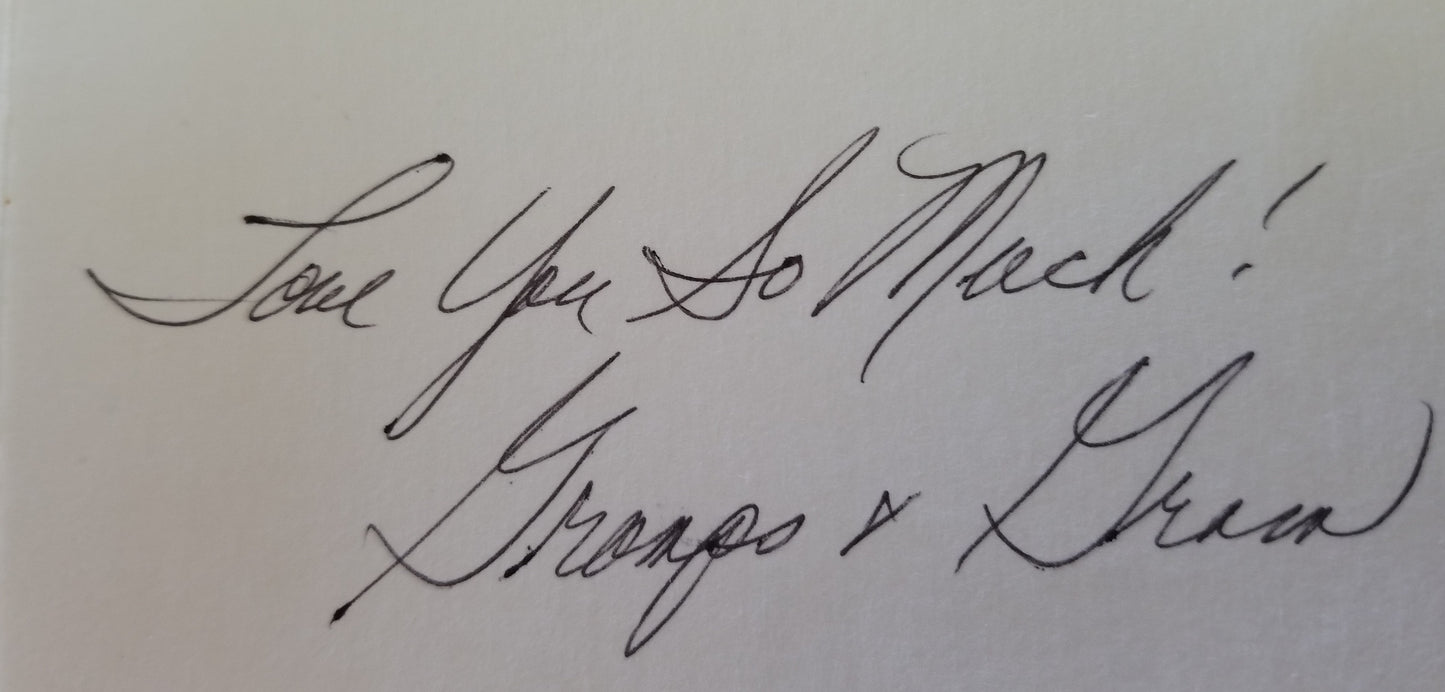 Love You So Much!
Gramps & Gram